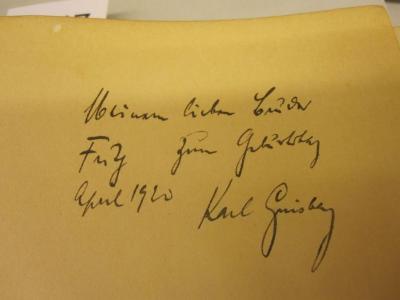 Meinem lieben Bruder
Fritz zum Geburtstag
April 1920 Karl Ginsberg